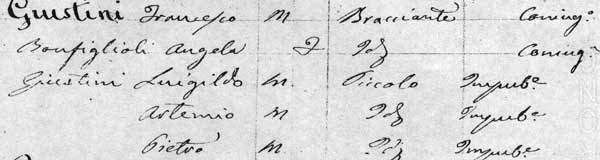 Giustini Francesco M Bracciante Coniug°
Bonfiglioli Angela F Id
Giustini Luigildo M. Piccolo Impube
Artemio M Id Impube
Pietro M Id Impube